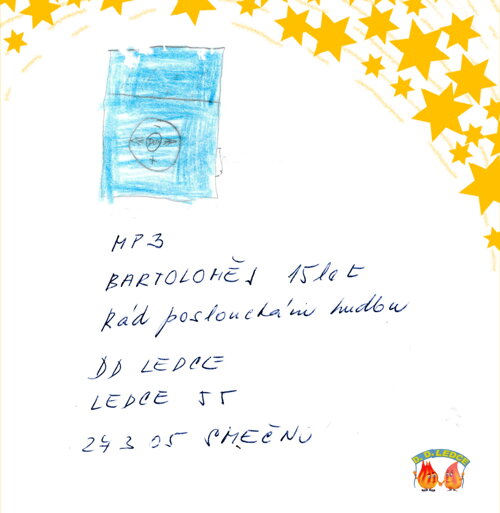 MP3
BARTOLOMĚJ 15 let
Rád poslouchám hudbu
DD LEDCE
LEDCE 55
273 05 SMEČNO
D. D. LEDCE